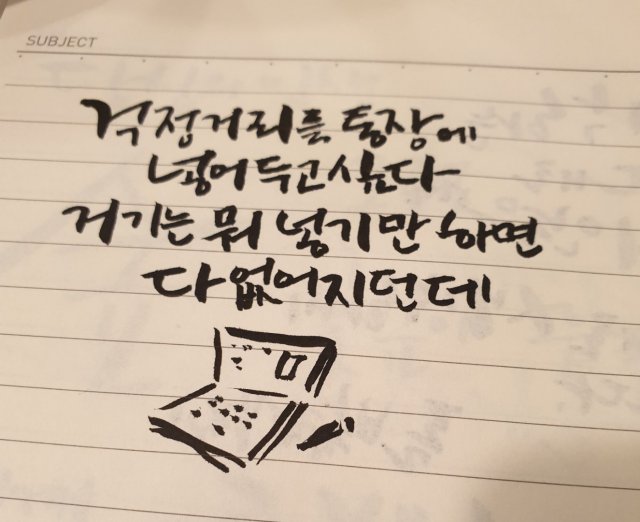 SUBJECT
걱정거리를 통장에
넣어두고싶다
거기는 뭐 넣기만 하면
다 없어지던데